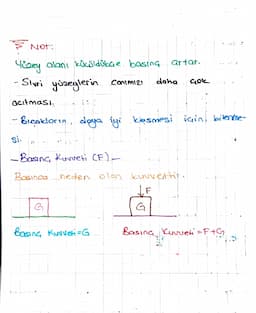 Not:
Yüzey alanı küçüldükçe basınç artar.
- Sivri yüzeylerin canımızı daha çok
acıtması,
- Bıçakların, daha iyi kesmesi için, bilenme-
si.
- Basınç Kuvveti (F) -
Basınca neden olan kuvvettir.
↓F
G
G
Basınç Kuvveti = G
Basınç Kuvveti = F+G